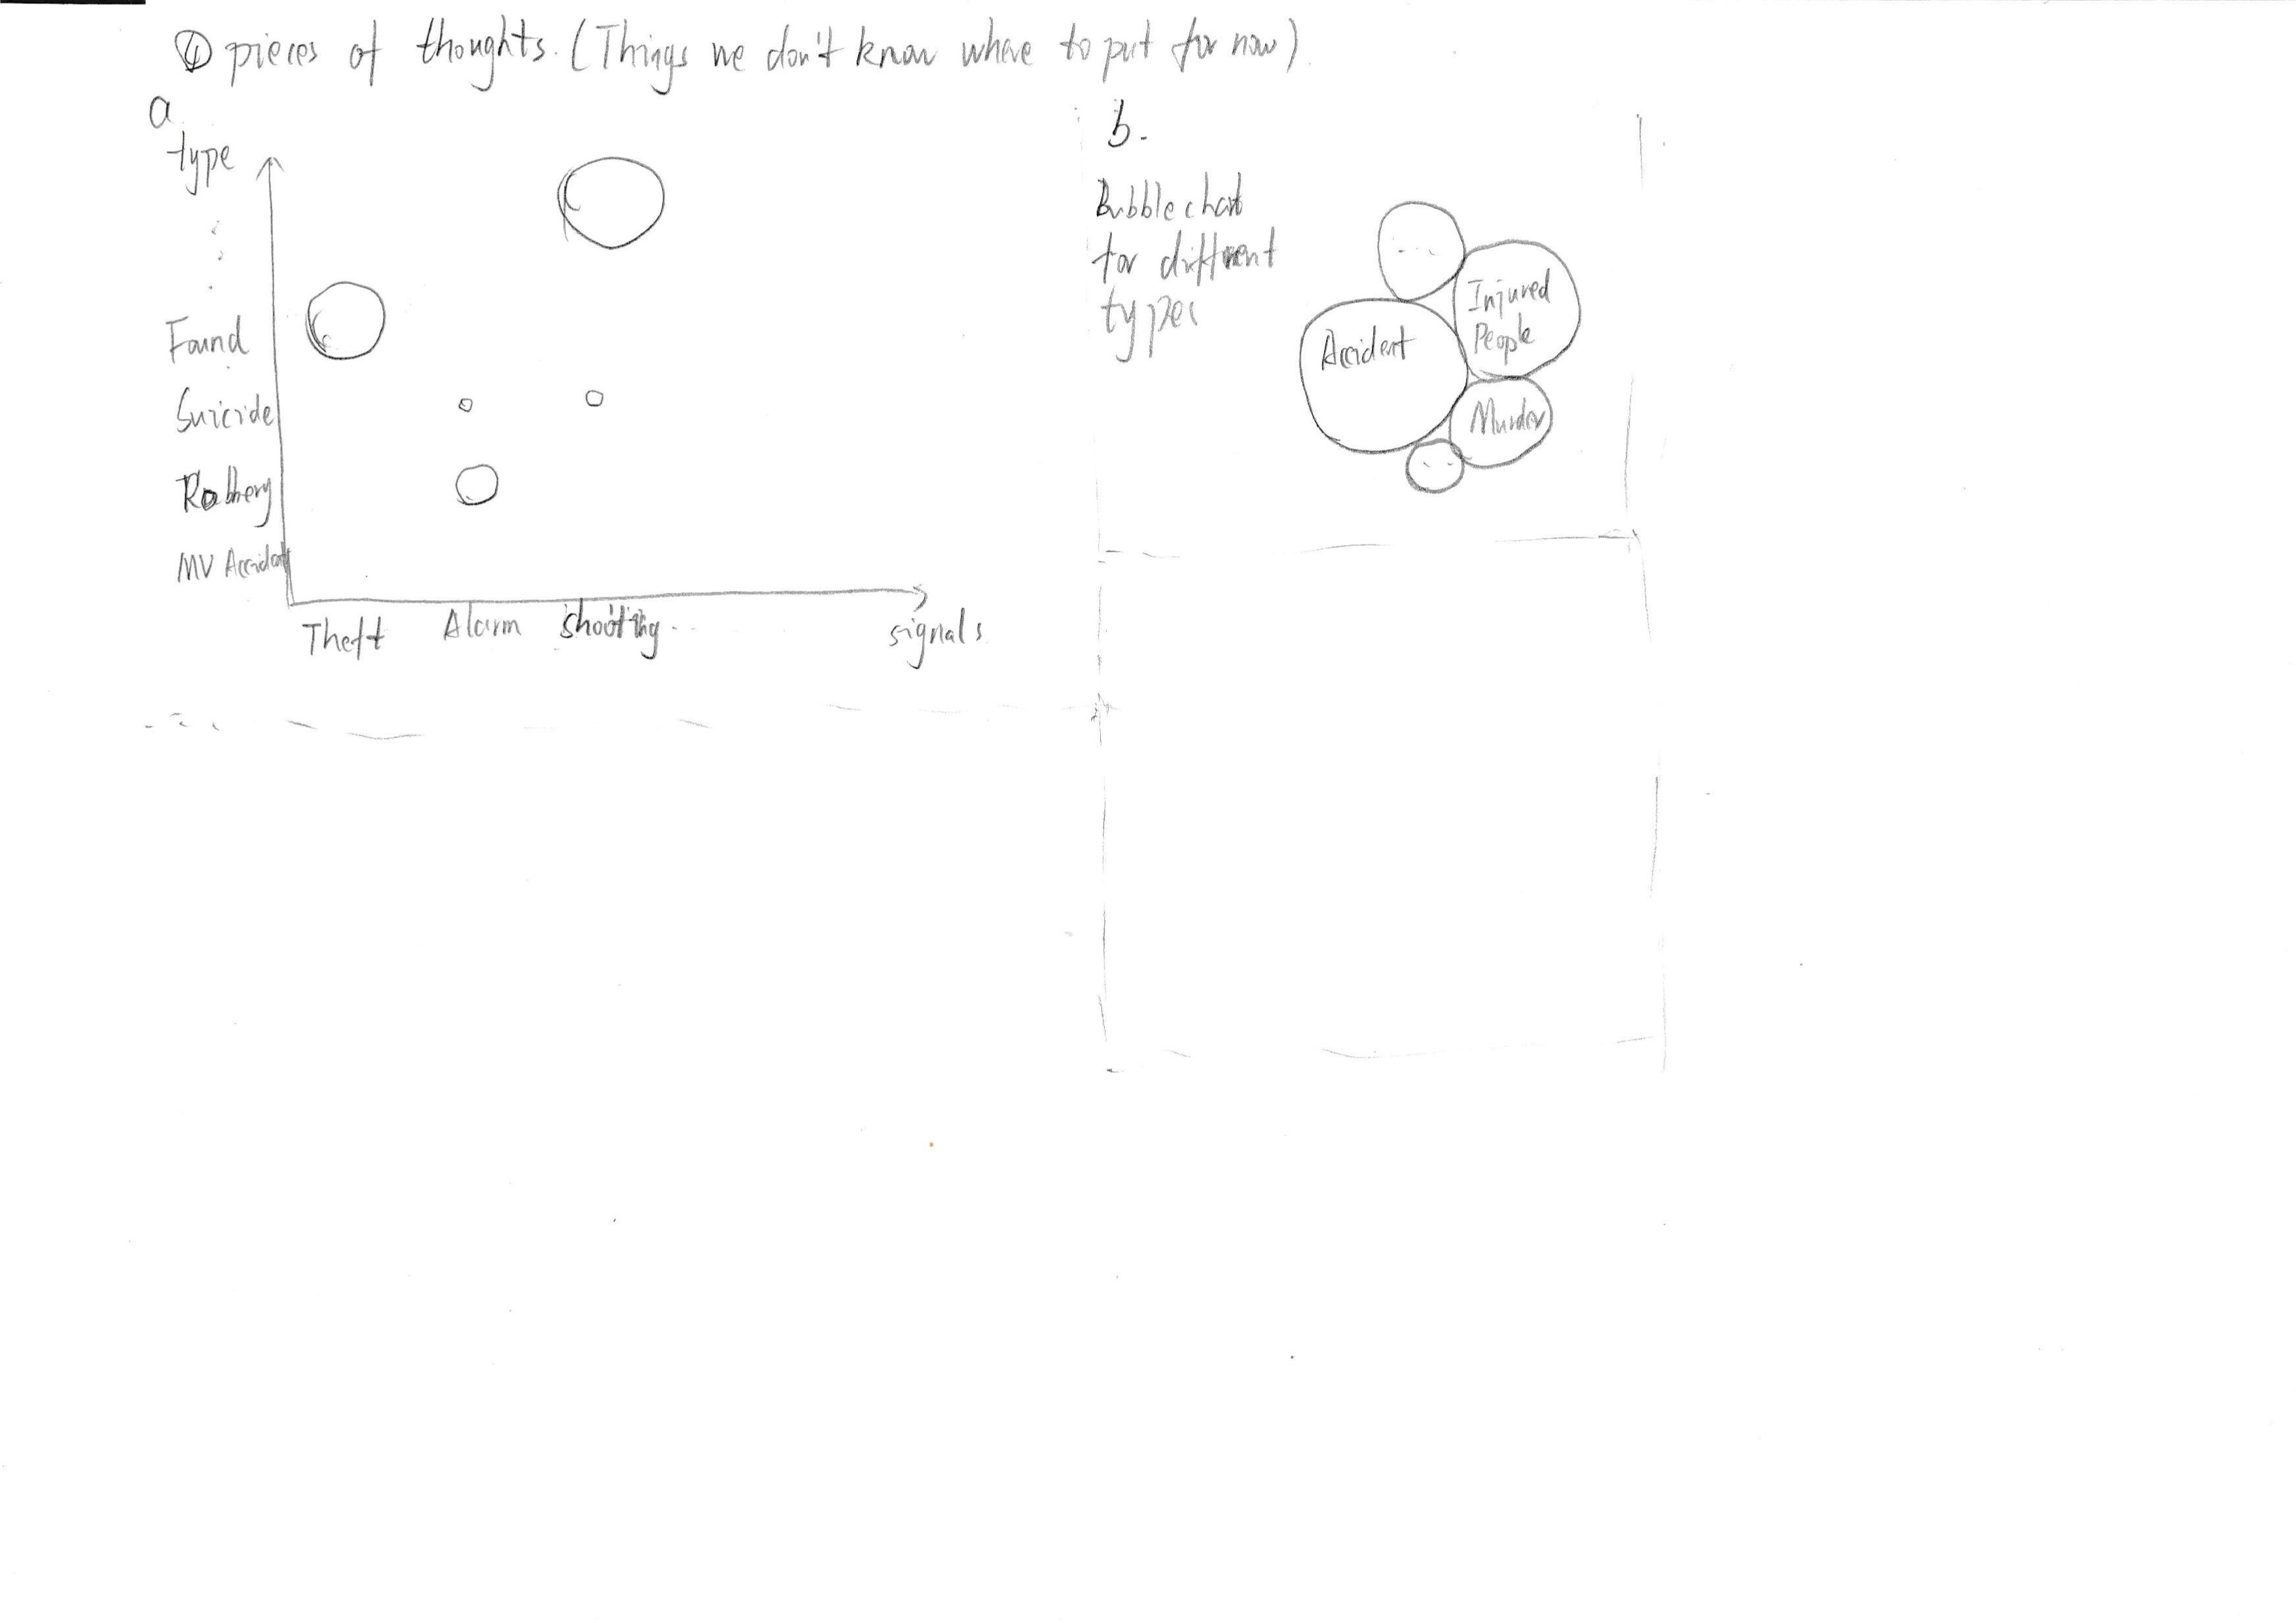 ④ pieces of thoughts. (Things we don't know where to put for now).
a
type
Found
Suicide
Robbery
MV Accident
Theft Alarm shooting... signals
b.
Bubble chart
for different
types
Injured
People
Accident
Murder